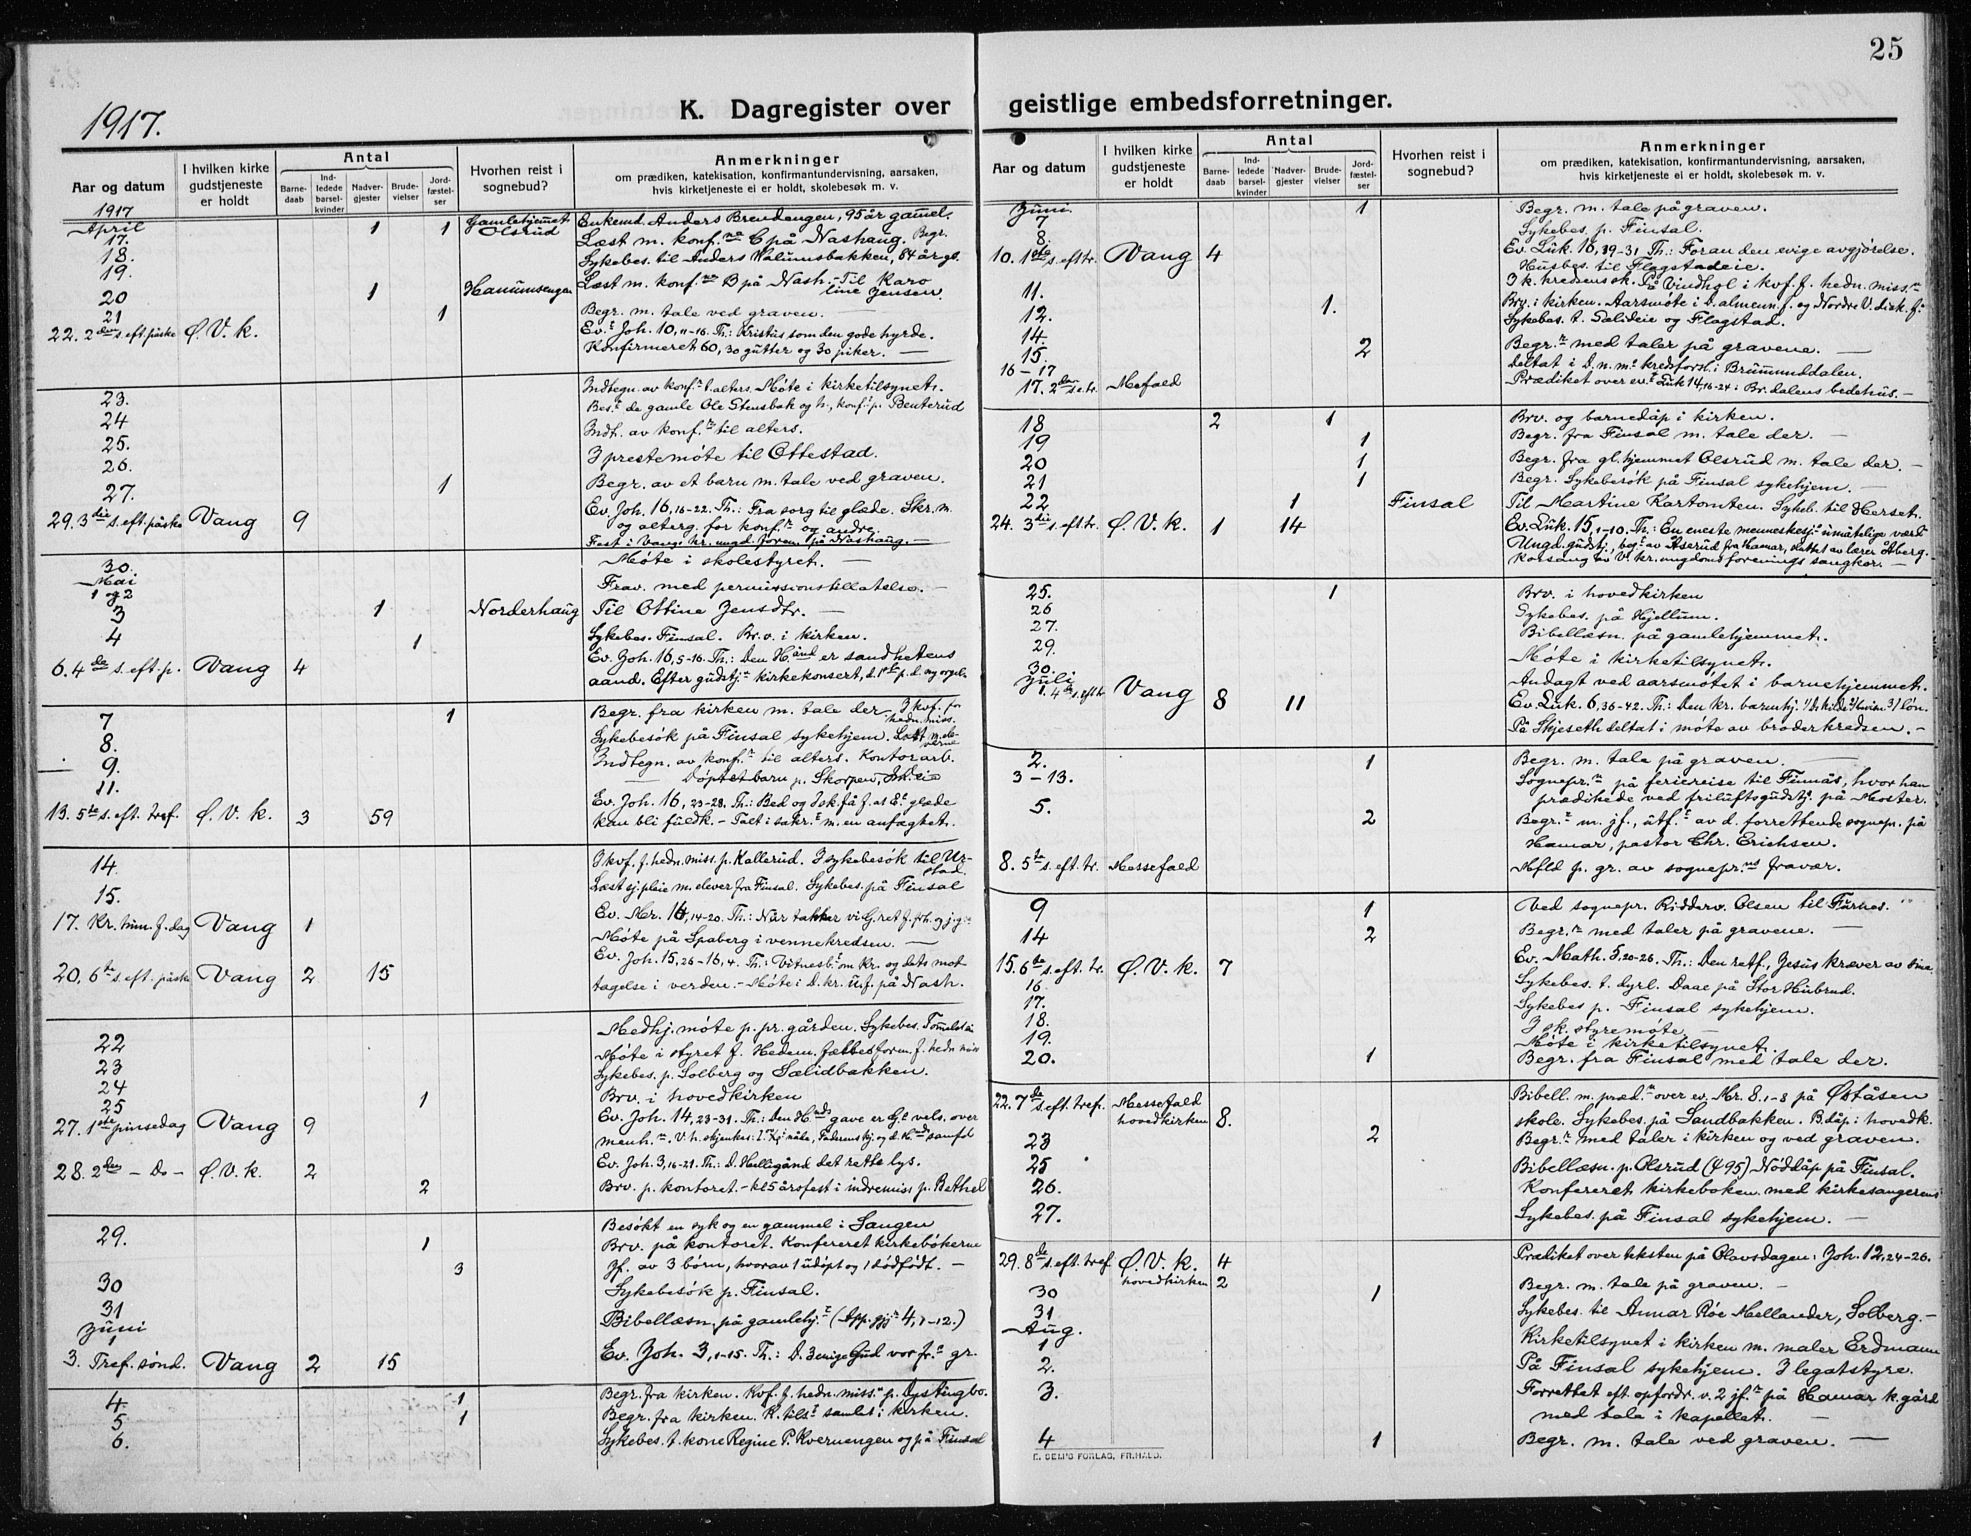 25
1917.
K. Dagregister over geistlige embedsforretninger.
Aar og datum
I hvilken kirke gudstjeneste er holdt
Antal
Barnedaab
Indledede barselkvinder
Nadvergjester
Brudevielser
Jordfæstelser
Hvorhen reist i sognebud?
Anmerkninger
om prædiken, katekisation, konfirmantundervisning, aarsaken, hvis kirketjeneste ei er holdt, skolebesøk m. v.
1917
April
17. 1 1 Gamlehjemmet Olsrud Enkemd. Anders Brendengen, 95 år gammel.
18. Læst m. konf.ne C på Nashaug. Begr.
19. Sykebes. til Anders
20 1 Læst m. konf.ne B på Nash. Til Karoline Jensen.
21 1 Begr. m. tale ved graven.
22. 2den s. eft. påske Ø. V. k. Ev. Joh. 10, 11-16. Th.: Kristus som den gode hyrde.
Konfirmeret 60, 30 gutter og 30 piker. —
23. Indtegn. av konf. t. alters. Møte i kirketilsynet.
24 Bes. de gamle Ole Stensbak og h., konf. p. Benterud
25. Indt. av konf. til alters.
26. I prestemøte til Ottestad.
27. 1 Begr. av et barn m. tale ved graven.
29. 3die s. eft. påske Vang 9 Ev. Joh. 16, 16-22. Th.: Fra sorg til glæde. Skr. m.
og alterg. for konf. og andre.
Fest i Vang kr. ungd. foren. på Nashaug. —
30. Møte i skolestyret. —
Mai
1 og 2 Frav. med permissionstillatelse. —
3 1 Norderhaug Til Ottine Jensdtr. —
4 1 Sykebes. Finsal. Br.v. i kirken.
6. 4de s. eft. p. Vang 4 Ev. Joh. 16, 5-16. Th.: Den H. ånd er sandhetens
aand. Efter gudstj. kirkekonsert,
7 1 Begr. fra kirken m. tale der. I kvf. for hedn. miss.
8. Sykebesøk på Finsal sykehjem. Læst m. eleverne
9. Indtegn. av konf. til alters. Kontorarb.
11. — Døpt et barn p. Skorpen,
13. 5te s. eft. tref. Ø. V. k. 3 59 Ev. Joh. 16, 23-28. Th.: Bed og I sk. få f. at E. glæde
kan bli fuldk. – Talt i sakr. m. en anfægtet.
14. I kvf. f. hedn. miss. p. Kallerud. I sykebesøk til
15. Læst sj.pleie m. elever fra Finsal. Sykebes. på Finsal
17. Kr. him. f. dag Vang 1 Ev. Mr. 16, 14-20. Th.: Når takker vi
Møte på Spaberg i vennekredsen. —
20. 6te s. eft. påske Vang 2 15 Ev. Joh. 15, 26-16, 4. Th.: Vitnesb. om Kr. og dets mottagelse i verden. – Møte i D. kr. U.f. på Nash.
22 Medhj. møte p. pr. gården. Sykebes.
23 Møte i styret f. Hedem. fællesforen. f. hedn. miss
24 Sykebes. p. Solberg og Sælidbakken.
25 1 Brv. i hovedkirken
27. 1ste pinsedag Vang 9 Ev. Joh. 14, 23-31. Th.: Den H. ånds gave er
28. 2den – Do – Ø. V. k. 2 Ev. Joh. 3, 16-21. Th.: D. Helligånd det rette lys.
2 Brv. p. kontoret. – kl 5 årsfest i indremiss p. Bethel
29. Besøkt en syk og en gammel i Sangen
1 Brv. på kontoret. Konfereret kirkebøkerne
3 Jf. av 3 børn, hvorav 1 udøpt og 1 dødfødt. —
30 Sykebesøk p. Finsal.
31 Bibellæsn. på gamlehj. (Ap. gj. 4, 1-12.)
Juni
1
3. Tref. sønd. Vang 2 15 Ev. Joh. 3, 1-15. Th.: D. 3 enige Gud vor fr. gr.
4 1 Begr. fra kirken. Kvf. f. hedn. miss. p. Dystingbo.
5 1 Begr. fra kirken. K. tils. samlet i kirken.
6. Sykebes. t. kone Regine P. Kvernengen og på Finsal
Aar og datum
I hvilken kirke gudstjeneste er holdt
Antal
Barnedaab
Indledede barselkvinder
Nadvergjester
Brudevielser
Jordfæstelser
Hvorhen reist i sognebud?
Anmerkninger
om prædiken, katekisation, konfirmantundervisning, aarsaken, hvis kirketjeneste ei er holdt, skolebesøk m. v.
Juni
7 1 Begr. m. tale på graven.
8. Sykebes. p. Finsal.
10. 1ste s. eft. tr. Vang 4 Ev. Luk. 16, 19-31 Th.: Foran den evige avgjørelse.
Husbes. til Flagstadeie.
11. I k. kredsensk. På Vindhol i kvf. f. hedn. miss.
12. 1. Brv. i kirken. Aarsmøte i
14. Sykebes. t. Sælideie og Flagstad.
15. 2 Begr. med taler på gravene. —
16–17 deltat i D. n. m. kredsforsl. i Brummunddalen.
17. 2den s. e. tr. Mefald Prædiket over ev. Luk 14, 16-24 i Br. dalens bedehus. –
18 2 1 Brv. og barnedåp i kirken.
19 1 Begr. fra Finsal m. tale der. —
20 1 Begr. fra gl. hjemmet Olsrud m. tale der. –
21 1 Begr. Sykebesøk på Finsal sykehjem. —
22 1 Finsal Til Martine Kartomten. Sykeb. til Herset.
24. 3die s. eft. tr. Ø. V. k. 1 14 Ev. Luk. 15, 1-10. Th.: En eneste menneskesj. umåtelige værd
Ungd. gudstj., av Åserud fra Hamar, sluttet av lærer Åberg.
Korsang av V. kr. ungdomsforenings sangkor. —
25. 1 Brv. i hovedkirken
26 Sykebes. på Hjellum.
27. Bibellæsn. på gamlehjemmet.
29. Møte i kirketilsynet.
30. Andagt ved aarsmøtet i barnehjemmet.
Juli
1. 4de s. eft. tr. Vang 8 11 Ev. Luk. 6, 36-42. Th.: Den kr. barmhj.
På Skjeseth deltat i møte av broderkredsen. –
2. 1 Begr. m. tale på graven. —
3–13. Sognepr. på feriereise til Finnås, hvor han
prædikede ved friluftsgudstj. på Moster.
5. 2 Begr. m. jf., utf. av d. forrettende sognepr. på
Hamar, pastor Chr. Erichsen.
8. 5te s. eft. tr. Messefald Mfld p. gr. av sognepr.ns fravær.
9 1 Ved sognepr. Ridderv. Olsen til Furnes.
14 2 Begr. med taler på gravene. —
15. 6te s. eft. tr. Ø. V. k. 7 Ev. Math. 5, 20-26. Th.: Den retf., Jesus kræver av sine
16. Sykebes. t. dyrl. Daae på Stor Hubrud.
17. Sykebes p. Finsal sykehjem.
18. I sk. styremøte —
19. Møte i kirketilsynet.
20. 1 Begr. fra Finsal med tale der.
22. 7de s. eft. tref. Messefald hovedkirken 8. Bibell. m. præd. over ev. Mr. 8, 1-8 på Øståsen
skole. Sykebes. på Sandbakken. B. dåp i hovedk.
23 2 Begr. med taler i kirken og ved graven.
25 Bibellæsn. p. Olsrud (4 95) Nøddåp på Finsal.
26. Konfereret kirkeboken med kirkesangeren
27. Sykebes. på Finsal sykehjem. —
29. 8de s. eft. tref. Ø. V. k. 4 Prædiket over teksten på Olavsdagen: Joh. 12, 24-26.
hovedkirken 2
30 1 Begr. m. tale på graven. —
31 Sykebes. til Annar Røe Mellander, Solberg. –
Aug.
1 Kirketilsynet i kirken m. maler Erdmann
2. På Finsal sykehjem. I legatstyre.
3. Forrettet eft. opfordr. v. 2 jf. på Hamar k. gård
med tale i kapellet. —
4 1 Begr. m. tale ved graven. —
E. SEM'S FORLAG, FR.HALD.